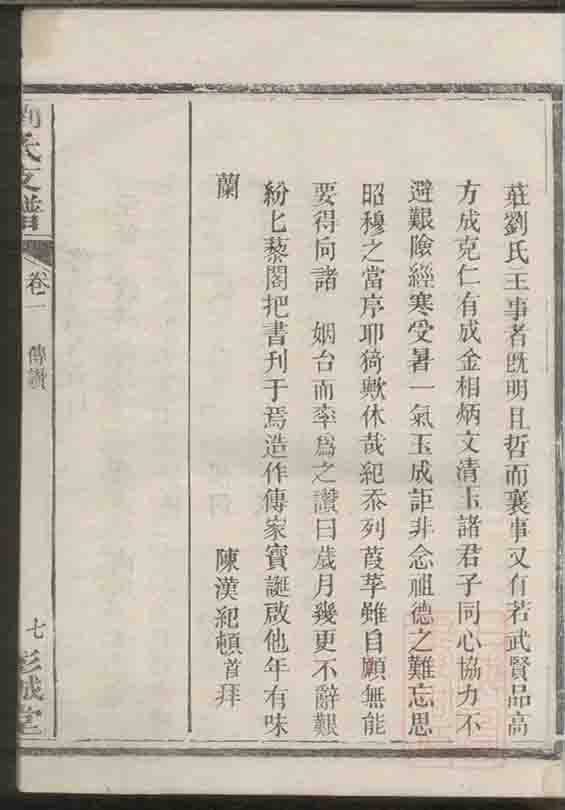 莊劉氏主事者旣明且哲而襄事又有若武賢品高
方成克仁有成金相炳文清玉諸君子同心協力不
避艱險經寒受暑一氣玉成詎非念祖德之難忘思
昭穆之當序耶猗歟休哉紀忝列葭莩雖自願無能
要得向諸 姻台而率爲之讃曰歲月幾更不辭艱
紛匕藜閣把書刊于焉造作傳家寶誕啟他年有味
蘭
陳漢紀頓首拜
劉氏支譜 卷一 傳讃 七 彭城堂